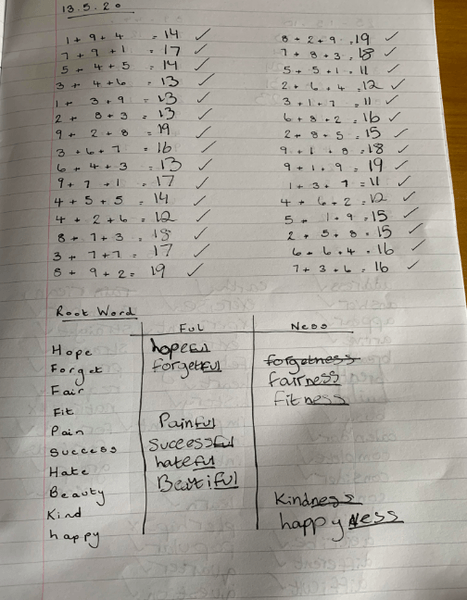 13.5.20
1 + 9 + 4 = 14 ✓
7 + 9 + 1 = 17 ✓
5 + 4 + 5 = 14 ✓
3 + 4 + 6 = 13 ✓
1 + 3 + 9 = 13 ✓
2 + 8 + 3 = 13 ✓
9 + 2 + 8 = 19 ✓
3 + 6 + 7 = 16 ✓
6 + 4 + 3 = 13 ✓
9 + 7 + 1 = 17 ✓
4 + 5 + 5 = 14 ✓
4 + 2 + 6 = 12 ✓
8 + 7 + 3 = 18 ✓
3 + 7 + 7 = 17 ✓
8 + 9 + 2 = 19 ✓
8 + 2 + 9 = 19 ✓
7 + 8 + 3 = 18 ✓
5 + 5 + 1 = 11 ✓
2 + 6 + 4 = 12 ✓
3 + 1 + 7 = 11 ✓
6 + 8 + 2 = 16 ✓
2 + 8 + 5 = 15 ✓
9 + 1 + 8 = 18 ✓
9 + 1 + 9 = 19 ✓
1 + 3 + 7 = 11 ✓
4 + 6 + 2 = 12 ✓
5 + 1 + 9 = 15 ✓
2 + 5 + 8 = 15 ✓
6 + 6 + 4 = 16 ✓
7 + 3 + 6 = 16 ✓
Root Word
Ful Ness
Hope hopeful
Forget forgetful forgetness
Fair fairness
Fit fitness
Pain Painful
Success Successful
Hate hateful
Beauty Beatiful
Kind Kindness
happy happyNess